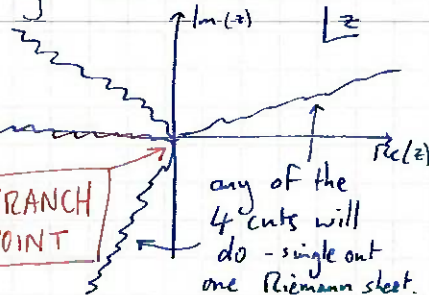 Im(z)
z
Re(z)
BRANCH
POINT
any of the
4 cuts will
do - single out
one Riemann sheet.